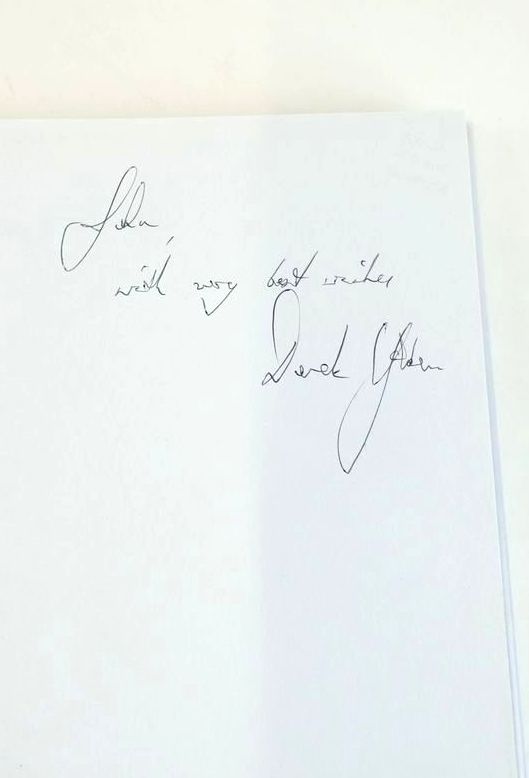 John,
with very best wishes
Derek